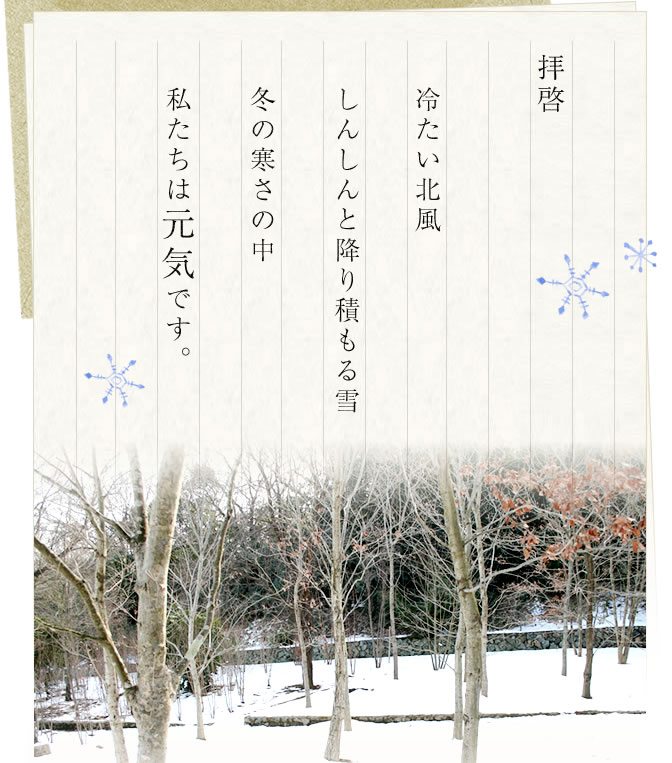 拝啓
冷たい北風
しんしんと降り積もる雪
冬の寒さの中
私たちは元気です。